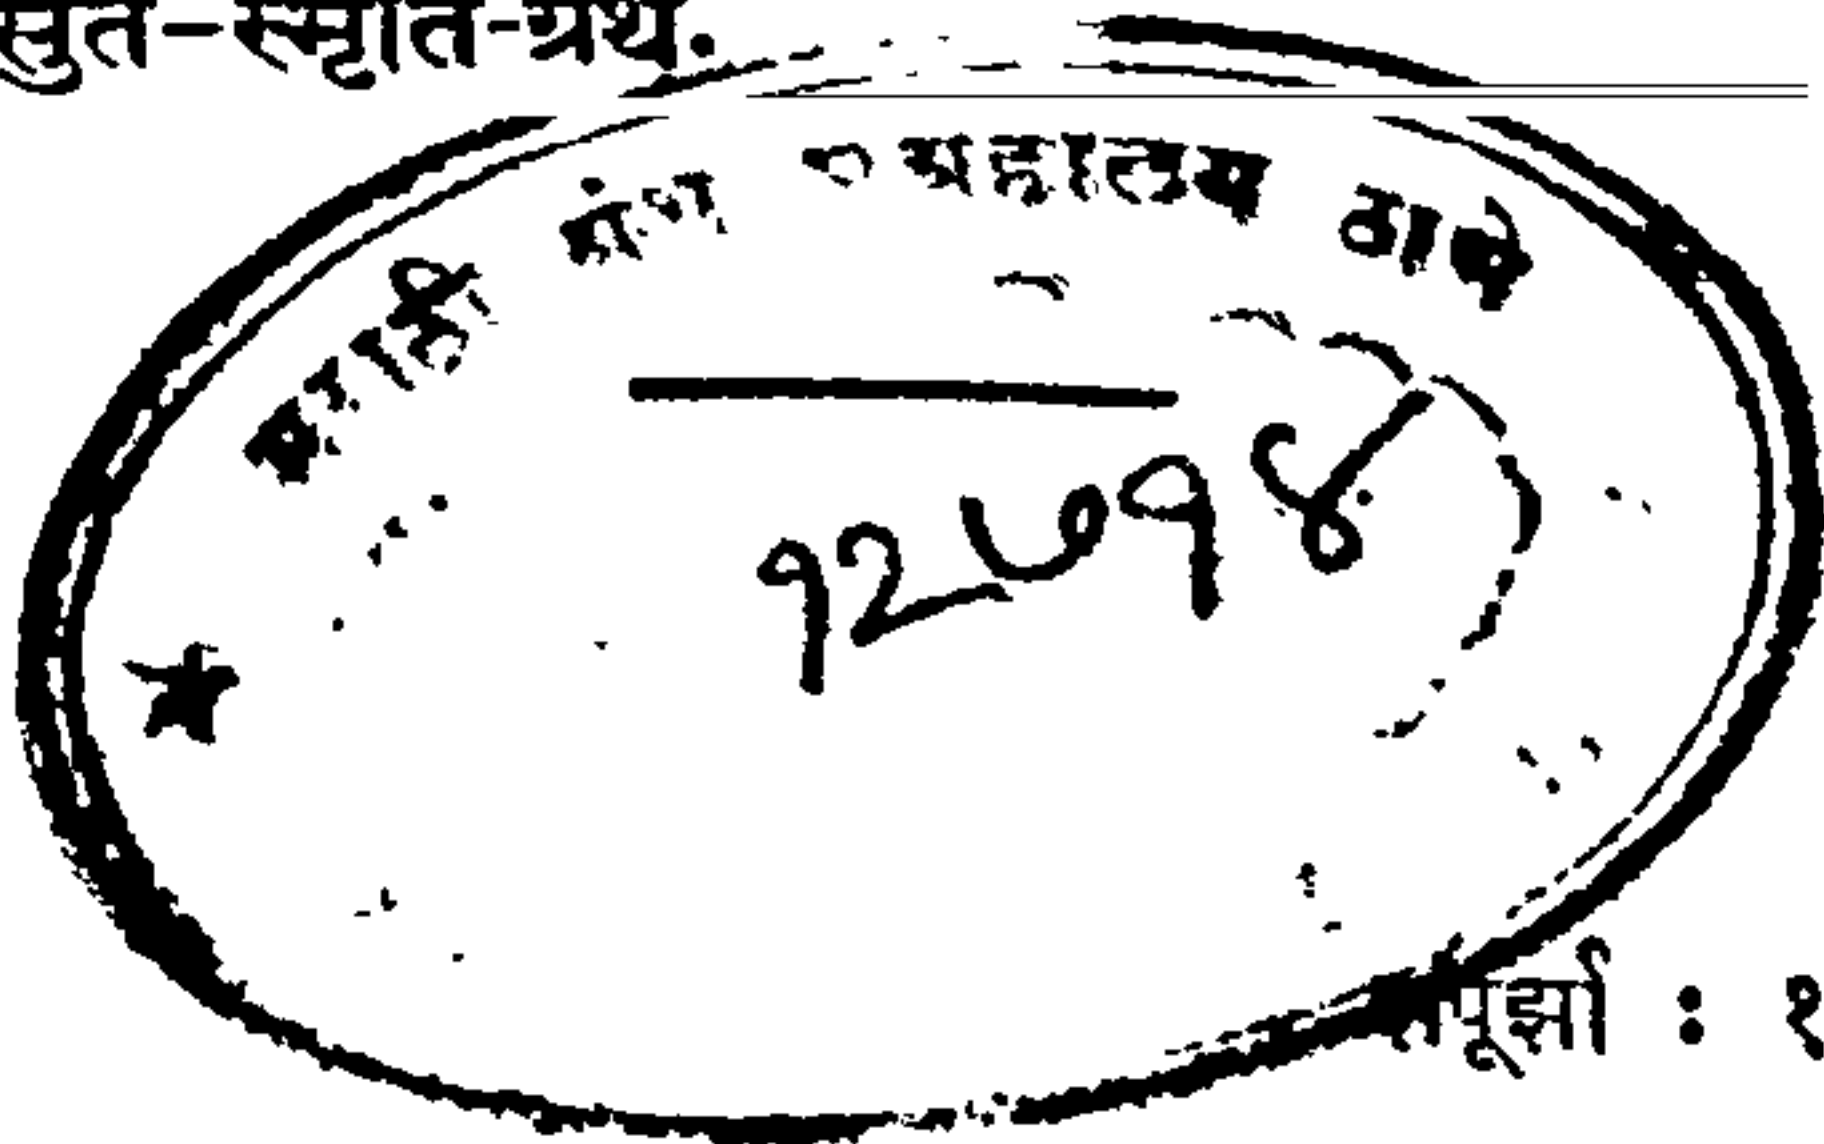 सुत-स्मृति-ग्रंथ.
मराठी ग्रंथ संग्रहालय ठाणे
१२७१४
: १